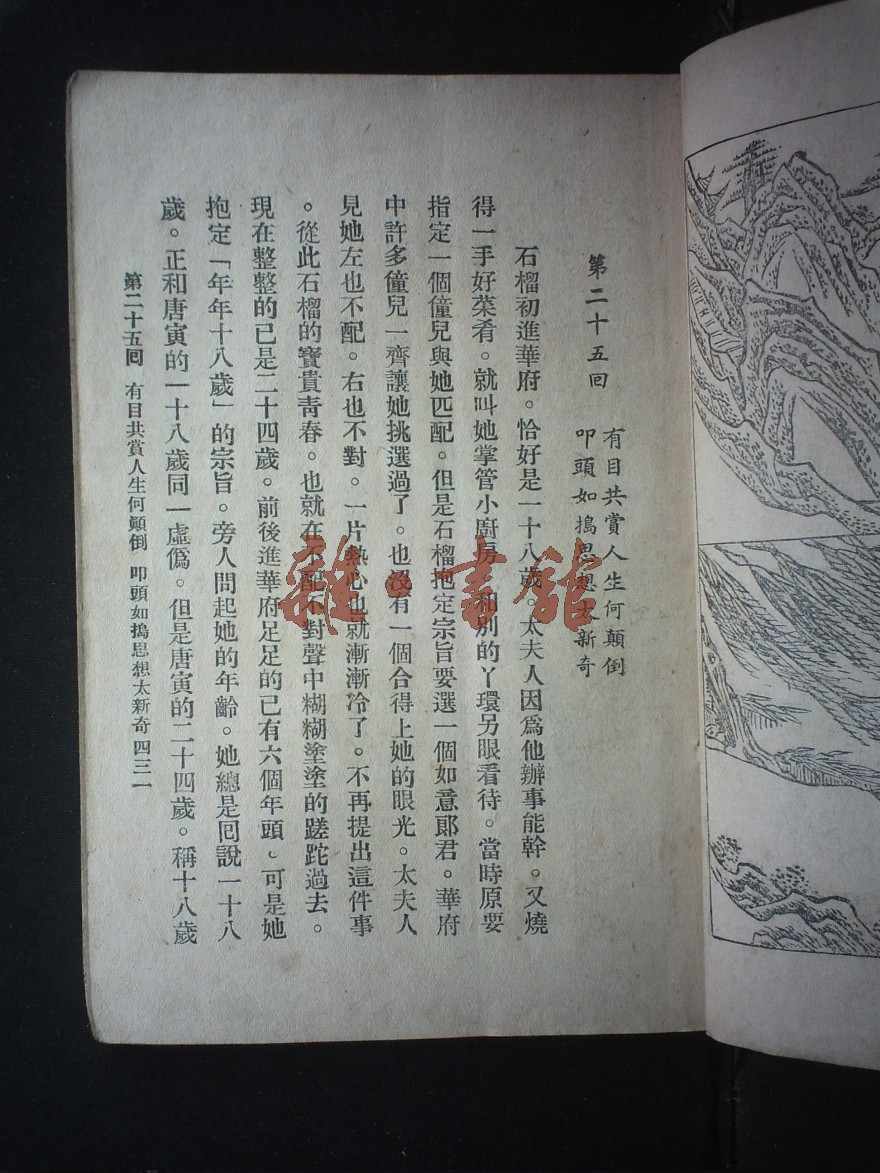 第二十五回
有目共賞人生何顛倒
叩頭如搗思想太新奇
石榴初進華府。恰好是一十八歲。太夫人因爲他辦事能幹。又燒
得一手好菜肴。就叫她掌管小廚房。和別的丫環另眼看待。當時原要
指定一個僮兒與她匹配。但是石榴抱定宗旨要選一個如意郎君。華府
中許多僮兒一齊讓她挑選過了。也沒有一個合得上她的眼光。太夫人
見她左也不配。右也不對。一片熱心也就漸漸冷了。不再提出這件事
。從此石榴的寶貴靑春。也就在不配不對聲中糊糊塗塗的蹉跎過去。
現在整整的已是二十四歲。前後進華府足足的已有六個年頭。可是她
抱定「年年十八歲」的宗旨。旁人問起她的年齡。她總是囘說一十八
歲。正和唐寅的一十八歲同一虛僞。但是唐寅的二十四歲。稱十八歲
第二十五囘 有目共賞人生何顛倒 叩頭如搗思想太新奇 四三一
雜·書館